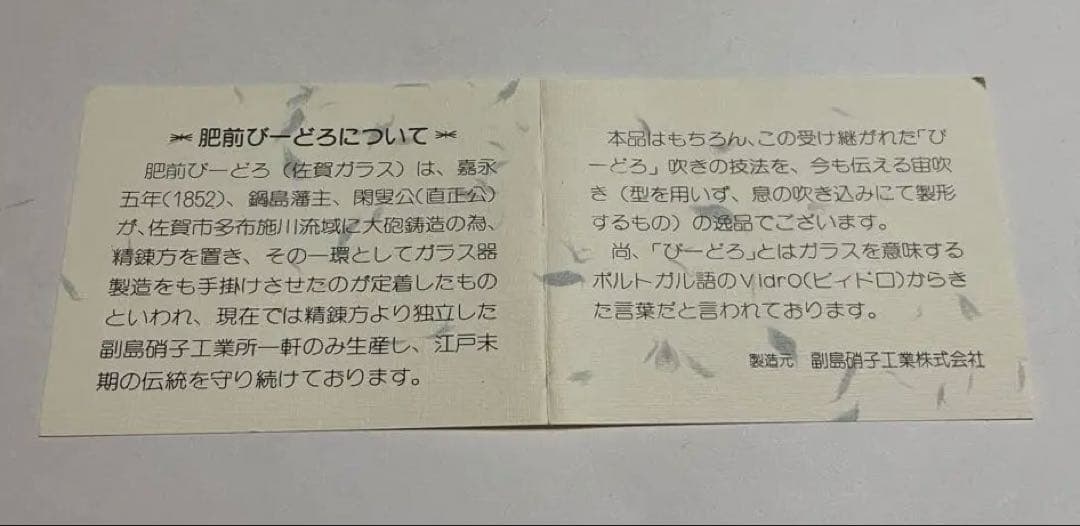 肥前びーどろについて
肥前びーどろ（佐賀ガラス）は、嘉永
五年(1852)、鍋島藩主、閑叟公(直正公)
が、佐賀市多布施川流域に大砲鋳造の為、
精錬方を置き、その一環としてガラス器
製造をも手掛けさせたのが定着したもの
といわれ、現在では精錬方より独立した
副島硝子工業所一軒のみ生産し、江戸末
期の伝統を守り続けております。
本品はもちろん、この受け継がれた「び
ーどろ」吹きの技法を、今も伝える宙吹
き（型を用いず、息の吹き込みにて製形
するもの）の逸品でございます。
尚、「びーどろ」とはガラスを意味する
ポルトガル語のVidro(ビィドロ)からき
た言葉だと言われております。
製造元 副島硝子工業株式会社